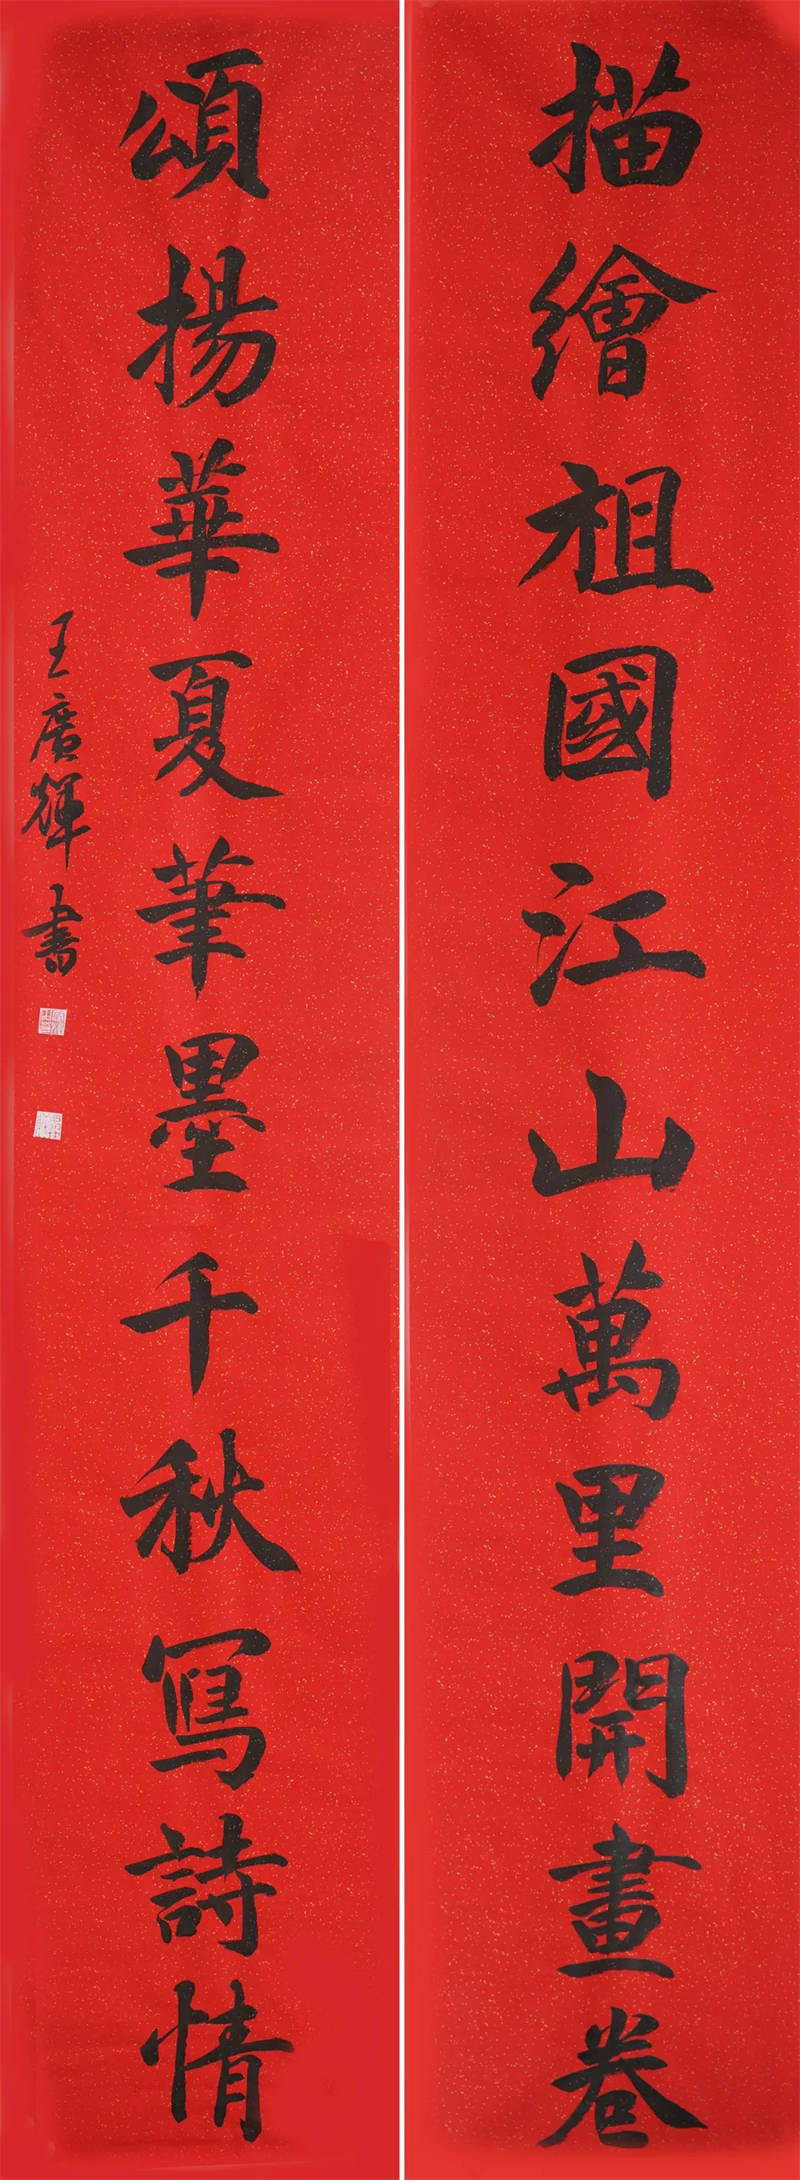 描繪祖國江山萬里開畫卷
頌揚華夏筆墨千秋寫詩情
王廣輝書